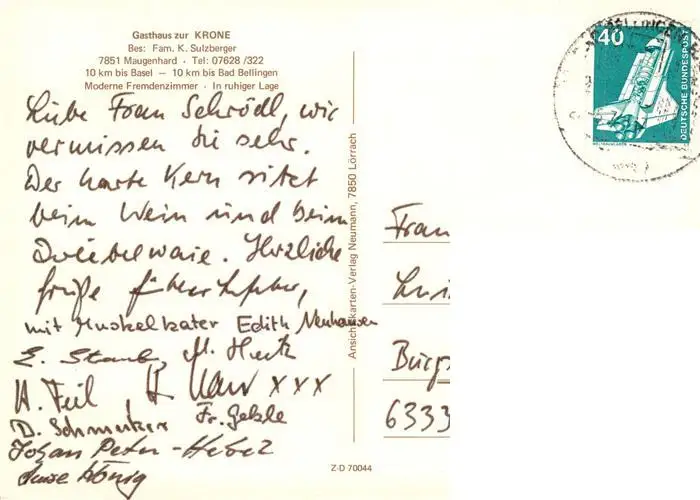 Gasthaus zur KRONE
Bes: Fam. K. Sulzberger
7851 Maugenhard · Tel: 07628 /322
10 km bis Basel — 10 km bis Bad Bellingen
Moderne Fremdenzimmer · In ruhiger Lage
Liebe Frau Schrödl, wir
vermissen Sie sehr.
Der harte Kern sitzt
beim Wein und beim
Zwiebelwaie. Herzliche
Grüße
mit Muskelkater Edith Neuhausen
E. Staub, M. Hertz
H. Feil, H. xxx
D. Schmutzer Fr. Geble
Johan Peter-Hebel
König
Ansichtskarten-Verlag Neumann, 7850 Lörrach
Z-D 70044
BELLINGEN
40
DEUTSCHE BUNDESPOST
WELTRAUMLABOR
Frau
Burgs
6333